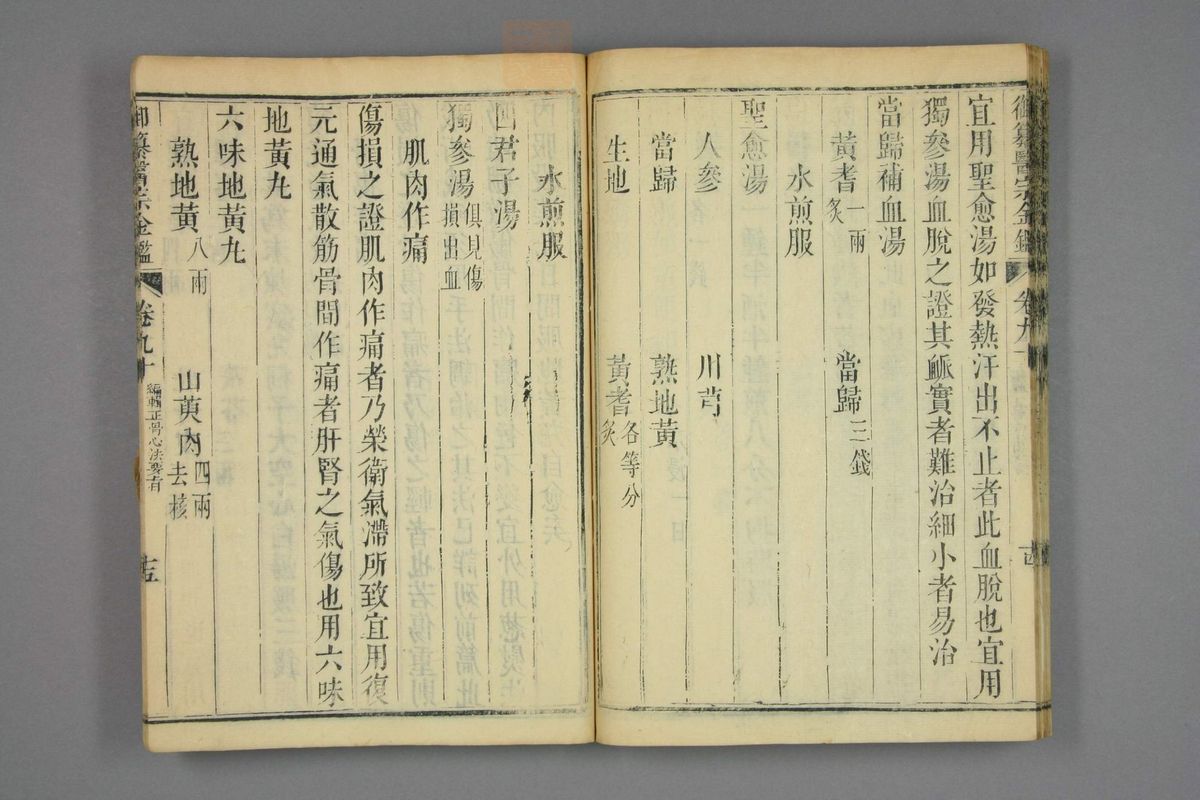 御纂醫宗金鑑 卷九十
宜用聖愈湯如發熱汗出不止者此血脫也宜用
獨參湯血脫之證其脈實者難治細小者易治
當歸補血湯
黃耆一兩炙 當歸三錢
水煎服
聖愈湯
人參 川芎
當歸 熟地黃
生地 黃耆炙各等分
水煎服
四君子湯
獨參湯俱見傷損出血
肌肉作痛
傷損之證肌肉作痛者乃榮衛氣滯所致宜用復
元通氣散筋骨間作痛者肝腎之氣傷也用六味
地黃丸
六味地黃丸
熟地黃八兩 山萸肉四兩去核
御纂醫宗金鑑 卷九十 編輯正骨心法要旨